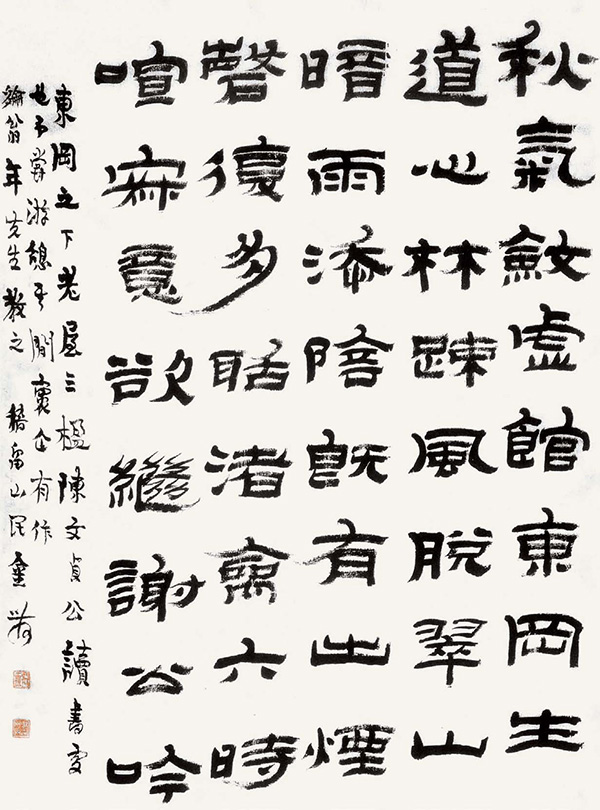 秋氣斂虛館東岡生
道心林踈風脫翠山
暗雨添陰既有出煙
磬復多聒渚禽六時
喧寂意欲繼謝公吟
東岡之下老屋三楹陳文貞公讀書處
也予嘗游憩其間有作
翰翁年先生教之 稽留山民金農